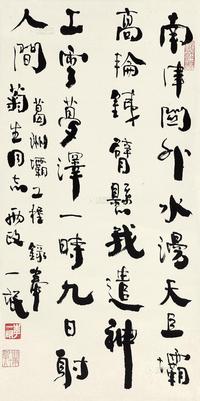 南津關外水漫天巨壩
高輪鐵臂懸我遣神
工雲夢澤一時九日射
人間
葛洲壩工程錄奉
生同志哂政 一氓